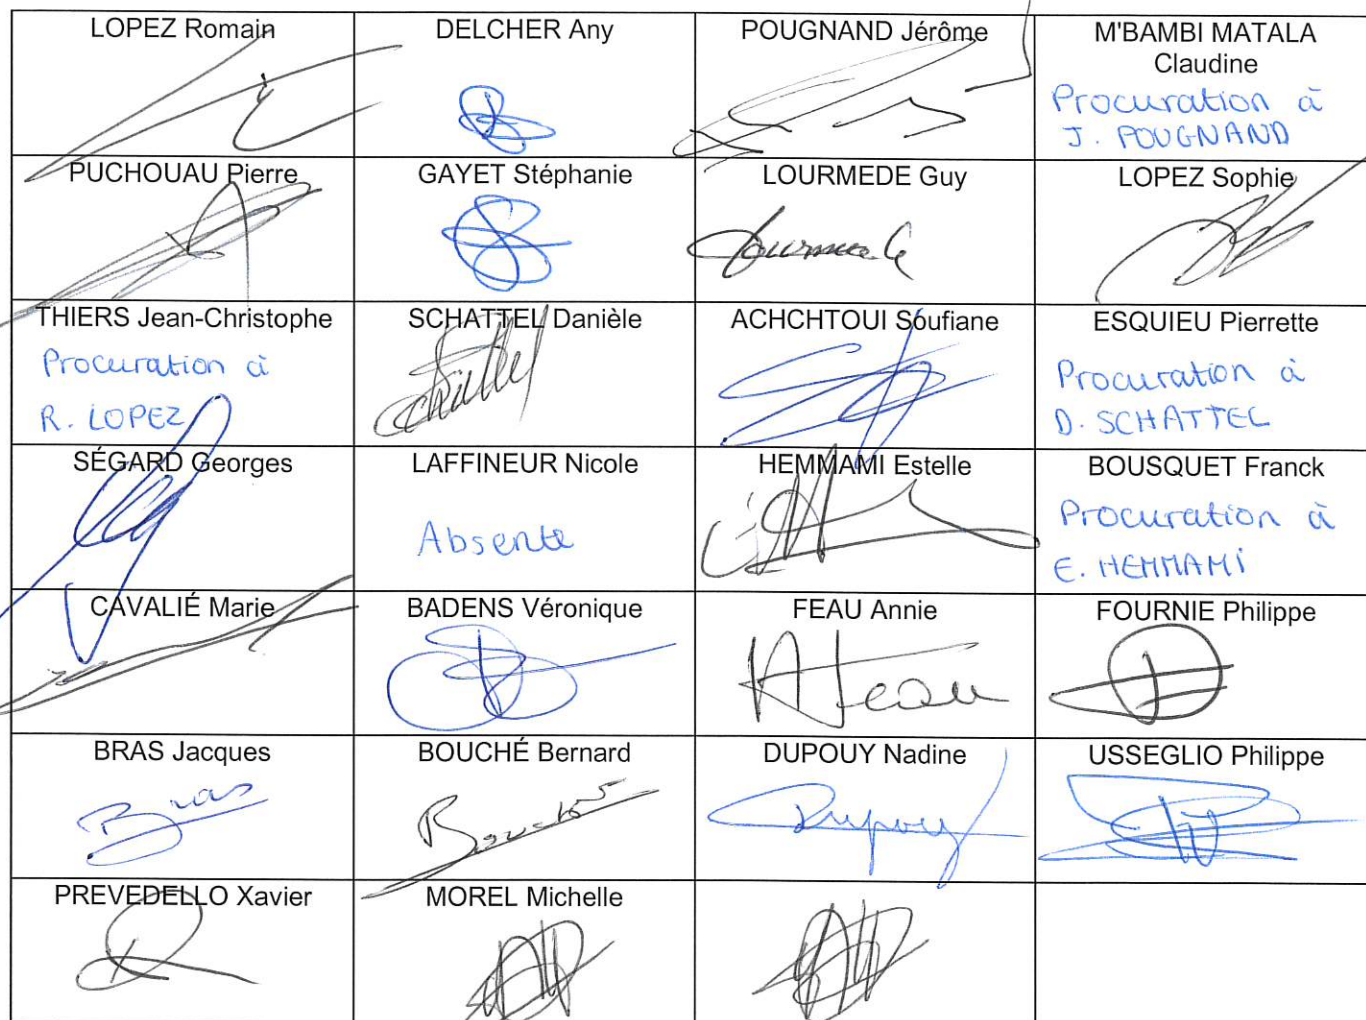 LOPEZ Romain
DELCHER Any
POUGNAND Jérôme
M'BAMBI MATALA
Claudine
Procuration à
J. POUGNAND
PUCHOUAU Pierre
GAYET Stéphanie
LOURMEDE Guy
Lourmede
LOPEZ Sophie
THIERS Jean-Christophe
Procuration à
R. LOPEZ
SCHATTEL Danièle
Schattel
ACHCHTOUI Soufiane
ESQUIEU Pierrette
Procuration à
D. SCHATTEL
SÉGARD Georges
LAFFINEUR Nicole
Absente
HEMMAMI Estelle
BOUSQUET Franck
Procuration à
E. HEMMAMI
CAVALIÉ Marie
BADENS Véronique
FEAU Annie
AFeau
FOURNIE Philippe
BRAS Jacques
Bras
BOUCHÉ Bernard
Bouché
DUPOUY Nadine
Dupouy
USSEGLIO Philippe
PREVEDELLO Xavier
MOREL Michelle